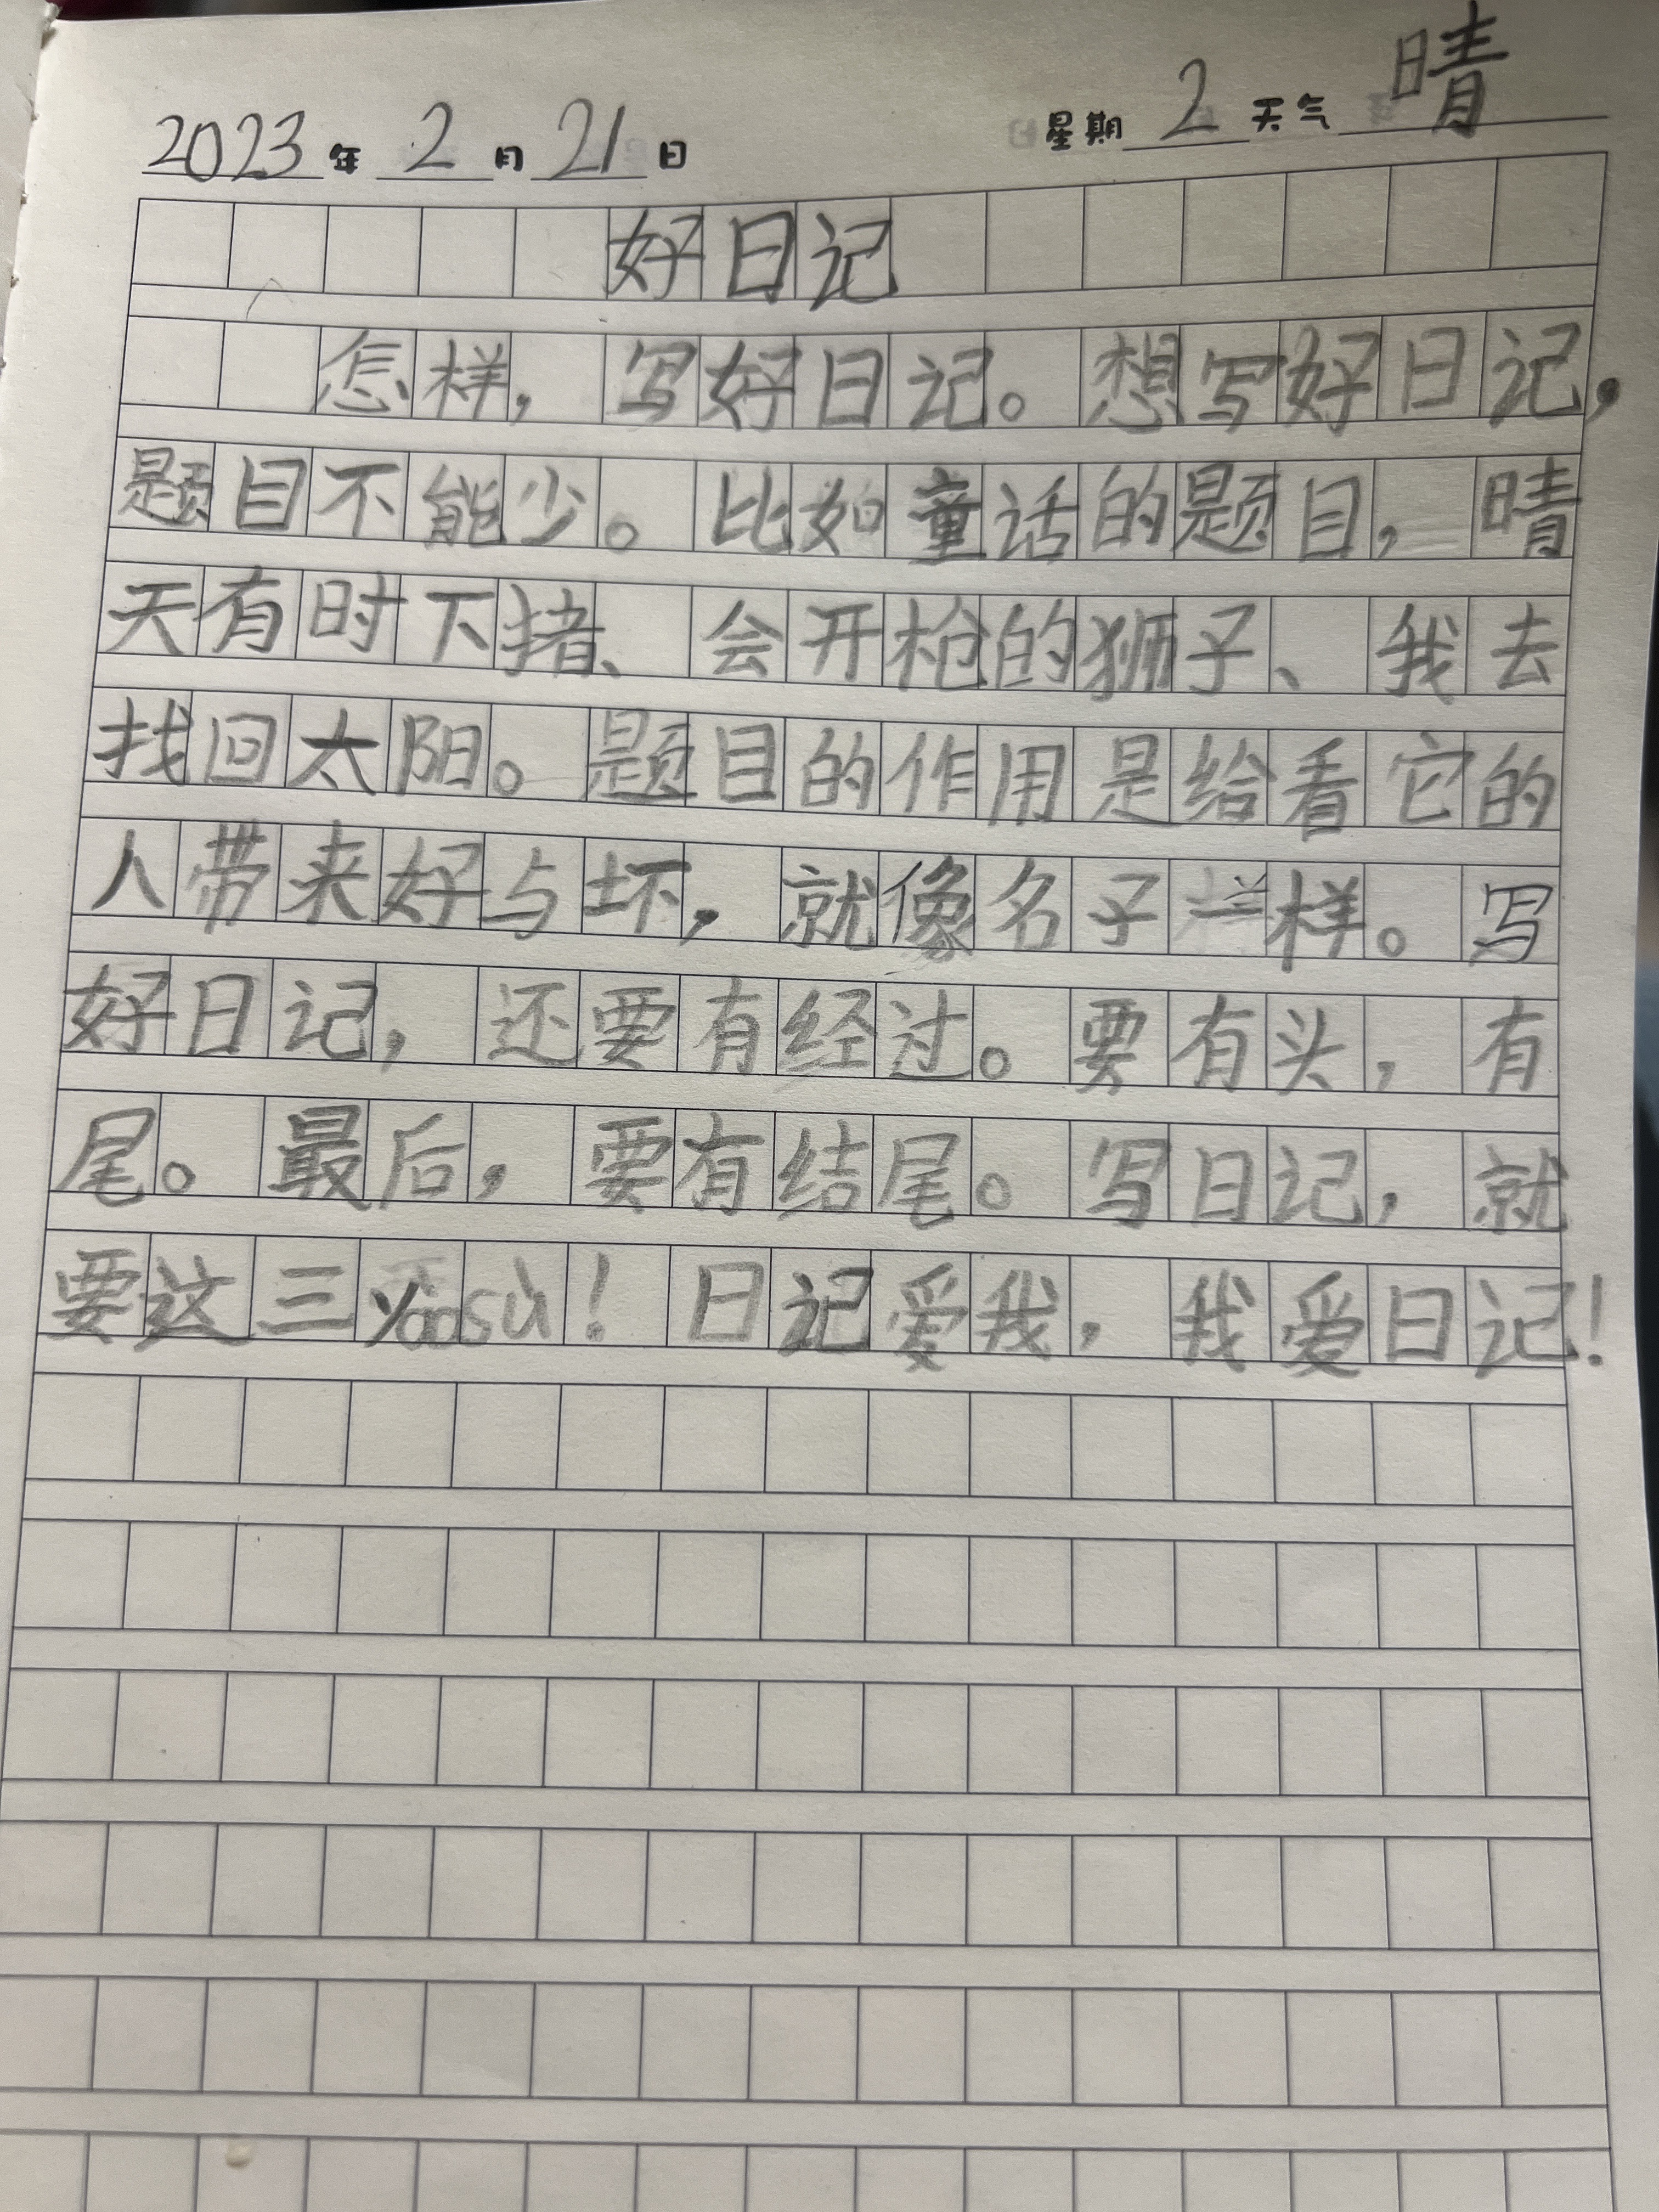 2023年2月21日 星期2天气晴
好日记
怎样，写好日记。想写好日记，
题目不能少。比如童话的题目，晴
天有时下猪、会开枪的狮子、我去
找回太阳。题目的作用是给看它的
人带来好与坏，就像名子一样。写
好日记，还要有经过。要有头，有
尾。最后，要有结尾。写日记，就
要这三yaosù！日记爱我，我爱日记！